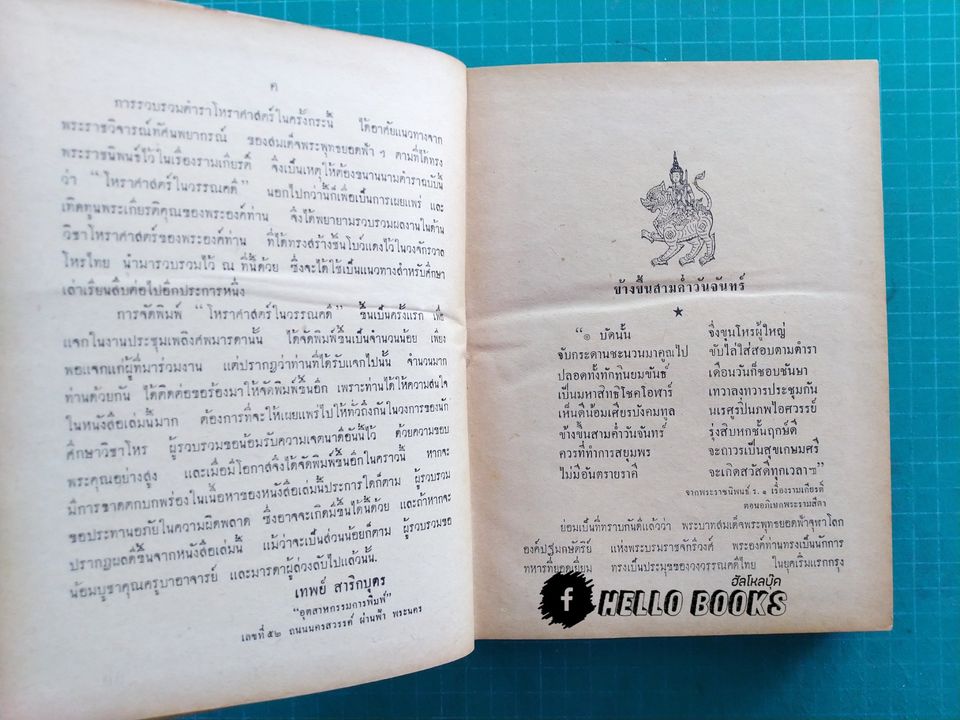 ค
การรวบรวมตำราโหราศาสตร์ในครั้งกระนี้ ได้อาศัยแนวทางจาก
พระราชวิจารณ์ทัศนพยากรณ์ ของสมเด็จพระพุทธยอดฟ้า ฯ ตามที่ได้ทรง
พระราชนิพนธ์ไว้ในเรื่องรามเกียรติ์ จึงเป็นเหตุให้ต้องขนานนามตำราฉบับนี้
ว่า “โหราศาสตร์ในวรรณคดี” นอกไปกว่านี้ก็เพื่อเป็นการเผยแพร่ และ
เทิดทูนพระเกียรติคุณของพระองค์ท่าน จึงได้พยายามรวบรวมผลงานในด้าน
วิชาโหราศาสตร์ของพระองค์ท่าน ที่ได้ทรงสร้างขึ้นโบว์แดงไว้ในวงจักรวาล
โหรไทย นำมารวบรวมไว้ ณ ที่นี้ด้วย ซึ่งจะได้ใช้เป็นแนวทางสำหรับศึกษา
เล่าเรียนสืบต่อไปอีกประการหนึ่ง
การจัดพิมพ์ “โหราศาสตร์ในวรรณคดี” ขึ้นเป็นครั้งแรก เพื่อ
แจกในงานประชุมเพลิงศพมารดานั้น ได้จัดพิมพ์ขึ้นเป็นจำนวนน้อย เพียง
พอแจกแก่ผู้ที่มาร่วมงาน แต่ปรากฏว่าท่านที่ได้รับแจกไปนั้น จำนวนมาก
ท่านด้วยกัน ได้ติดต่อขอร้องมาให้จัดพิมพ์ขึ้นอีก เพราะท่านได้ให้ความสนใจ
ในหนังสือเล่มนี้มาก ต้องการที่จะให้เผยแพร่ไปให้ทั่วถึงกันในวงการของนัก
ศึกษาวิชาโหร ผู้รวบรวมขอน้อมรับความเจตนาดีอันนี้ไว้ ด้วยความขอบ
พระคุณอย่างสูง และเมื่อมีโอกาสจึงได้จัดพิมพ์ขึ้นอีกในคราวนี้ หากจะ
มีการขาดตกบกพร่องในเนื้อหาของหนังสือเล่มนี้ประการใดก็ตาม ผู้รวบรวม
ขอประทานอภัยในความผิดพลาด ซึ่งอาจจะเกิดมีขึ้นได้ด้วย และถ้าหากจะ
ปรากฏผลดีขึ้นจากหนังสือเล่มนี้ แม้ว่าจะเป็นส่วนน้อยก็ตาม ผู้รวบรวมขอ
น้อมบูชาคุณครูบาอาจารย์ และมารดาผู้ล่วงลับไปแล้วนั้น.
เทพย์ สาริกบุตร
“อุตสาหกรรมการพิมพ์”
เลขที่ ๕๒ ถนนนครสวรรค์ ผ่านฟ้า พระนคร
ข้างขึ้นสามค่ำวันจันทร์
“๏ บัดนั้น จึ่งขุนโหรผู้ใหญ่
จับกระดานชะนวนมาคูณไป ขับไล่ใส่สอบตามตำรา
ปลอดทั้งทักทินยมขันธ์ เดือนวันก็ชอบชันษา
เป็นมหาสิทธิโชคโอฬาร์ เทวาลงทวารประชุมกัน
เห็นดีน้อมเศียรบังคมทูล นเรศูรปิ่นภพไอศวรรย์
ข้างขึ้นสามค่ำวันจันทร์ รุ่งสิบหกชั้นฤกษ์ดี
ควรที่ทำการสยุมพร จะถาวรเป็นสุขเกษมศรี
ไม่มีอันตรายราคี จะเกิดสวัสดิ์ทุกเวลาฯ”
จากพระราชนิพนธ์ ร. ๑ เรื่องรามเกียรติ์
ตอนอภิเษกพระรามสีดา
ย่อมเป็นที่ทราบกันดีแล้วว่า พระบาทสมเด็จพระพุทธยอดฟ้าจุฬาโลก
องค์ปฐมกษัตริย์ แห่งพระบรมราชจักรีวงศ์ พระองค์ท่านทรงเป็นนักการ
ทหารที่ยอดเยี่ยม ทรงเป็นประมุขของวงวรรณคดีไทย ในยุคเริ่มแรกกรุง
ฮัลโหลบุ๊ค
f HELLO BOOKS